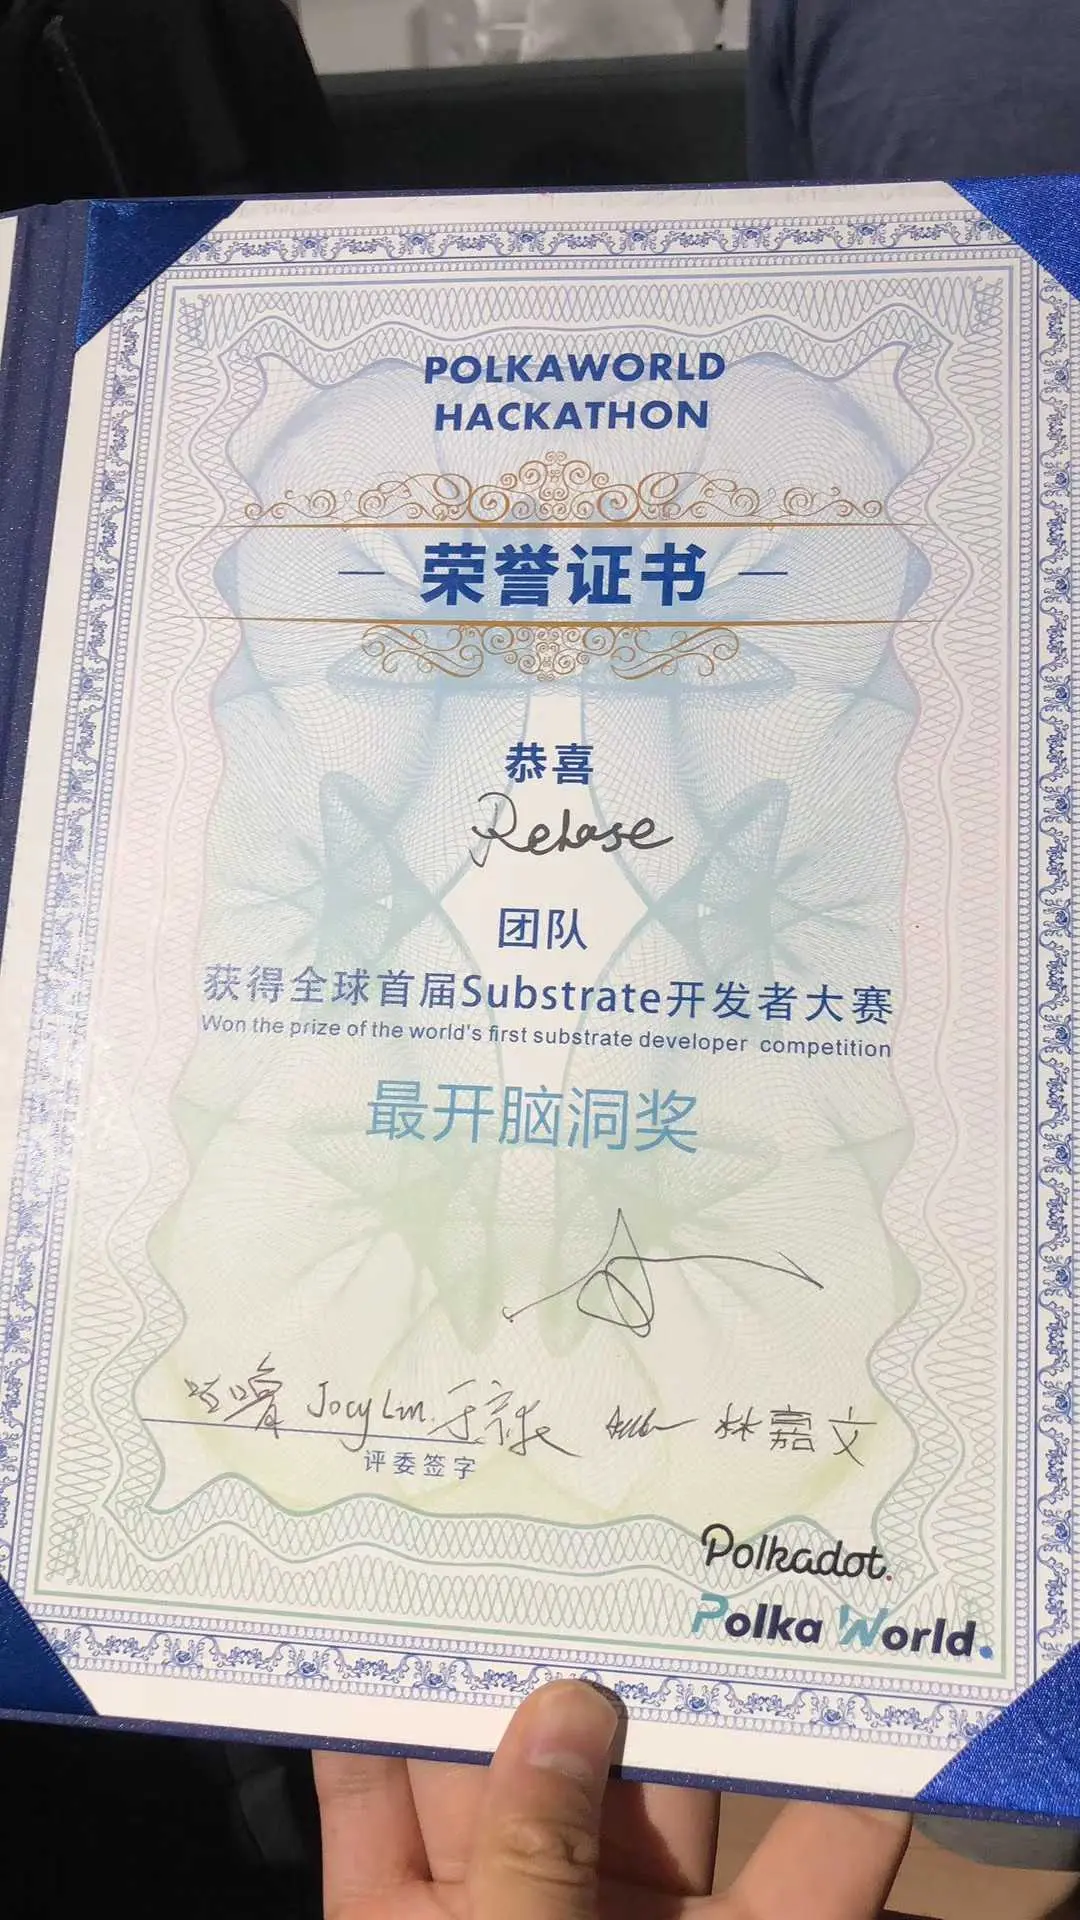 POLKAWORLD
HACKATHON
荣誉证书
恭喜
Rebase
团队
获得全球首届Substrate开发者大赛
Won the prize of the world's first substrate developer competition
最开脑洞奖
Jocy Lin.
林嘉文
评委签字
Polkadot.
Polka World.